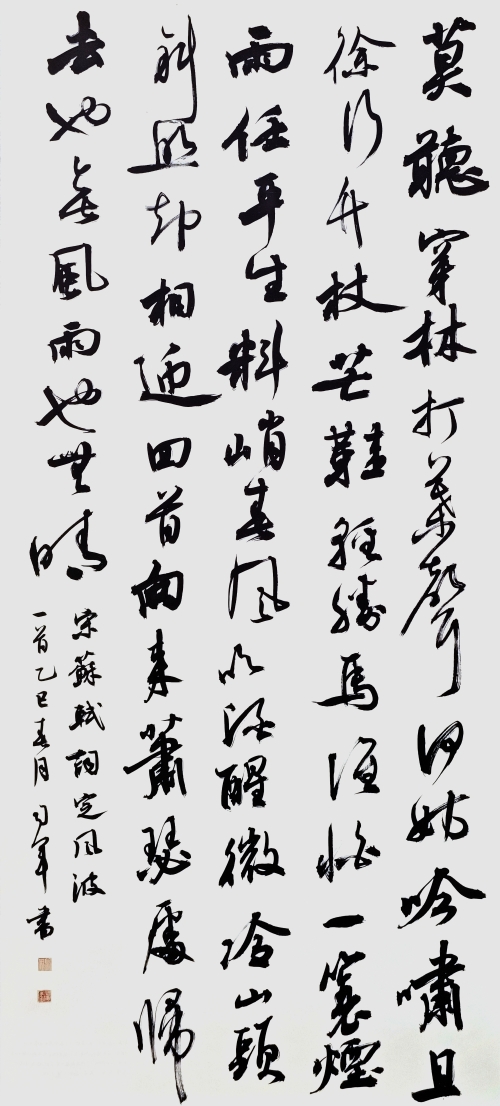 莫聽穿林打葉聲何妨吟嘯且
徐行竹杖芒鞋輕勝馬誰怕一蓑煙
雨任平生料峭春風吹酒醒微冷山頭
斜照却相迎回首向來蕭瑟處歸
去也無風雨也無晴
宋蘇軾詞定風波
一首乙巳春月軍書